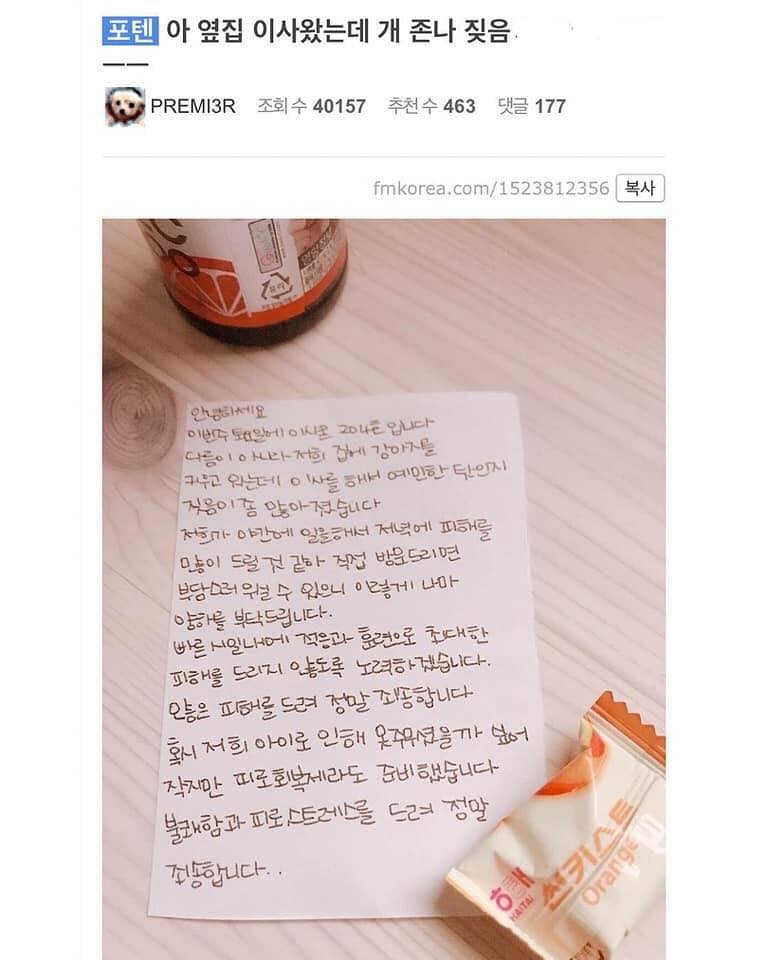 포텐 아 옆집 이사왔는데 개 존나 짖음.
ㅡㅡ
PREMI3R 조회 수 40157 추천 수 463 댓글 177
fmkorea.com/1523812356 복사
안녕하세요
이번주 토요일에 이사온 204호 입니다
다름이 아니라 저희 집에 강아지를
키우고 있는데 이사를 해서 예민한 탓인지
짖음이 좀 많아졌습니다
저희가 야간에 일을해서 저녁에 피해를
많이 드릴 것 같아 직접 방문드리면
부담스러워하실 수 있으니 이렇게 나마
양해를 부탁드립니다.
빠른 시일내에 적응과 훈련으로 최대한
피해를 드리지 않도록 노력하겠습니다.
인층은 피해를 드려 정말 죄송합니다
혹시 저희 아이로 인해 못주무셨을까 싶어
작지만 피로회복제라도 준비했습니다
불쾌함과 피로,스트레스를 드려 정말
죄송합니다..
해태
HAITAI
썬키스트
Orange